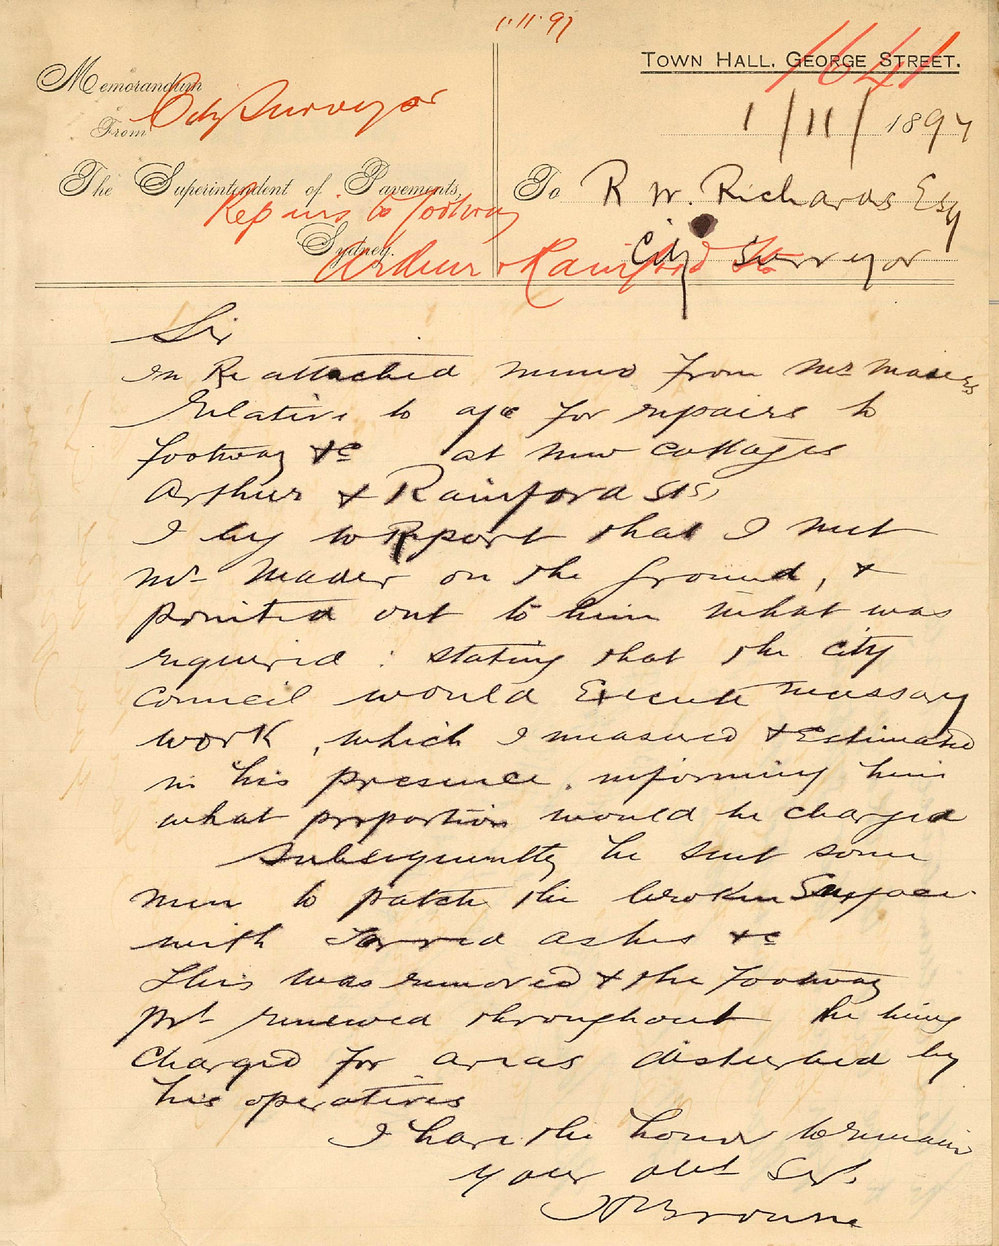 1.11.97
TOWN HALL, GEORGE STREET.
1641
Memorandum
From
City Surveyor
1/11/1897
The Superintendent of Pavements,
Sydney.
To R W. Richards Esq
City Surveyor
Repairs to Footway
Arthur & Rainford Sts
Sir
In Re attached memo from Mr Maders
relative to a/c for repairs to
footway &c at new cottages
Arthur & Rainford Sts,
I beg to Report that I met
Mr Mader on the ground, &
pointed out to him what was
required: stating that the city
council would Execute necessary
work, which I measured & Estimated
in his presence, informing him
what proportion would be charged
Subsequently he sent some
men to patch the broken Surface
with Tarred ashes &c
This was removed & the footway
prt renewed throughout he being
charged for areas disturbed by
his operatives
I have the honor to remain
your obt Sert.
Browne